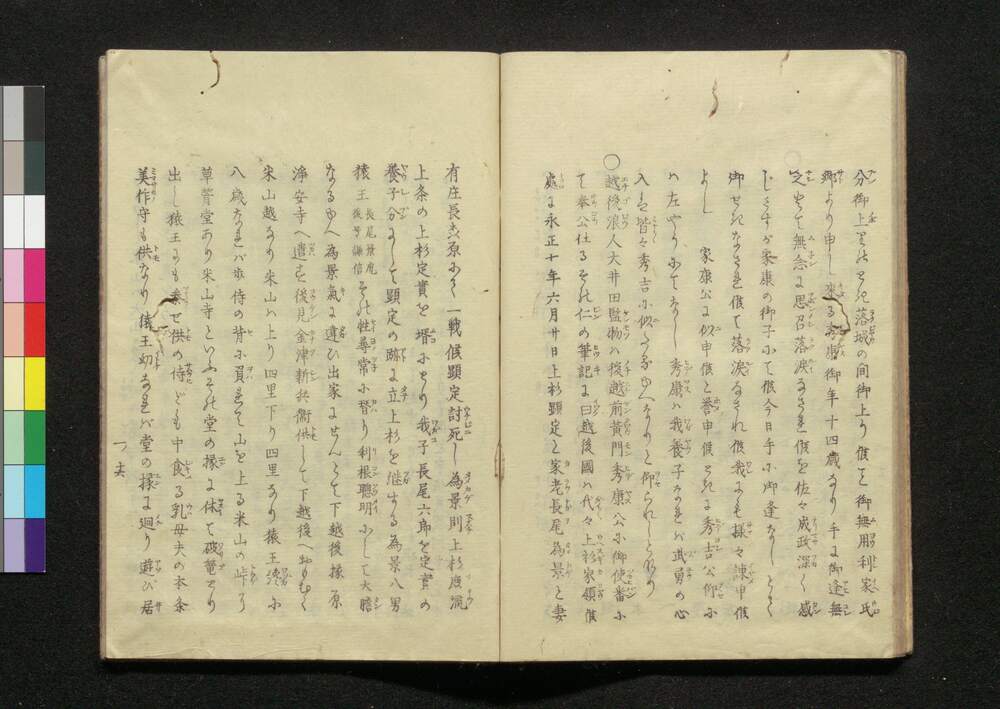 分御上リ候を落城の間御上り候と御無用利家氏
郷より申し来る秀康御年十四歳なり手に御逢無
之とて無念に思召落涙なされ候を佐々成政深く感
じさすが家康の御子にて候今日手に御逢なしとて
御せきなされ候て落涙なされ候我にも様々諫申候
よし 家康公に似申候と誉申候ときに秀吉公仰に
ハ左やうにてなし秀康ハ我養子なれバ武勇の心
入も皆々秀吉に似たるゆへなりと仰られしとなり
○越後浪人大井田監物ハ後越前黄門秀康公に御使番に
て奉公仕るその仁の筆記に曰越後國ハ代々上杉家領候
處に永正十年六月廿日上杉顕定と家老長尾為景と妻
有庄長森原にて一戦候顕定討死し為景則上杉庶流
上条の上杉定實を壻にとり我子長尾六郎を定實の
養子分にして顕定の跡に立上杉を継せる為景八男
猿王 長尾景虎 後号謙信 その性尋常に替り利根聰明にして大膽
なるゆへ為景氣に違ひ出家にせんとて下越後橡原
浄安寺へ遣す後見金津新兵衛供して下越後へおもむく
米山越なり米山ハ上り四里下り四里なり猿王漸に
八歳なれバ歩侍の背に負れて山を上る米山の峠に
草菅堂あり米山寺といふその堂の椽に休て破篭とり
出し猿王にも奉て供の侍ども中食る乳母夫の本条
美作守も供なり猿王幼なれバ堂の椽に廻り遊び居